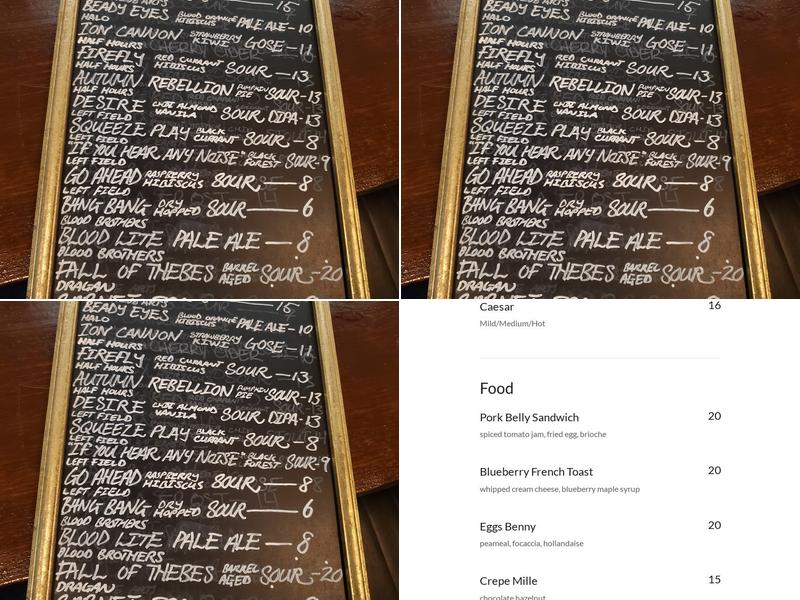 15
BEADY EYES BLOOD ORANGE HIBISCUS PALE ALE-10
HALO
ION CANNON STRAWBERRY KIWI GOSE-11
HALF HOURS
FIREFLY RED CURRANT HIBISCUS SOUR-13
HALF HOURS
AUTUMN REBELLION PUMPKIN PIE SOUR-13
HALF HOURS
DESIRE CHAI ALMOND VANILA SOUR DIPA-13
LEFT FIELD
SQUEEZE PLAY BLACK CURRANT SOUR-8
LEFT FIELD
"IF YOU HEAR ANY NOISE" BLACK FOREST SOUR-9
LEFT FIELD
GO AHEAD RASPBERRY HIBISCUS SOUR-8
LEFT FIELD
BANG BANG DRY HOPPED SOUR-6
BLOOD BROTHERS
BLOOD LITE PALE ALE-8
BLOOD BROTHERS
FALL OF THEBES BARREL AGED SOUR-20
DRAGAN
15
BEADY EYES BLOOD ORANGE HIBISCUS PALE ALE-10
HALO
ION CANNON STRAWBERRY KIWI GOSE-11
HALF HOURS
FIREFLY RED CURRANT HIBISCUS SOUR-13
HALF HOURS
AUTUMN REBELLION PUMPKIN PIE SOUR-13
HALF HOURS
DESIRE CHAI ALMOND VANILA SOUR DIPA-13
LEFT FIELD
SQUEEZE PLAY BLACK CURRANT SOUR-8
LEFT FIELD
"IF YOU HEAR ANY NOISE" BLACK FOREST SOUR-9
LEFT FIELD
GO AHEAD RASPBERRY HIBISCUS SOUR-8
LEFT FIELD
BANG BANG DRY HOPPED SOUR-6
BLOOD BROTHERS
BLOOD LITE PALE ALE-8
BLOOD BROTHERS
FALL OF THEBES BARREL AGED SOUR-20
DRAGAN
15
BEADY EYES BLOOD ORANGE HIBISCUS PALE ALE-10
HALO
ION CANNON STRAWBERRY KIWI GOSE-11
HALF HOURS
FIREFLY RED CURRANT HIBISCUS SOUR-13
HALF HOURS
AUTUMN REBELLION PUMPKIN PIE SOUR-13
HALF HOURS
DESIRE CHAI ALMOND VANILA SOUR DIPA-13
LEFT FIELD
SQUEEZE PLAY BLACK CURRANT SOUR-8
LEFT FIELD
"IF YOU HEAR ANY NOISE" BLACK FOREST SOUR-9
LEFT FIELD
GO AHEAD RASPBERRY HIBISCUS SOUR-8
LEFT FIELD
BANG BANG DRY HOPPED SOUR-6
BLOOD BROTHERS
BLOOD LITE PALE ALE-8
BLOOD BROTHERS
FALL OF THEBES BARREL AGED SOUR-20
DRAGAN
Caesar 16
Mild/Medium/Hot
Food
Pork Belly Sandwich 20
spiced tomato jam, fried egg, brioche
Blueberry French Toast 20
whipped cream cheese, blueberry maple syrup
Eggs Benny 20
peameal, focaccia, hollandaise
Crepe Mille 15
chocolate hazelnut